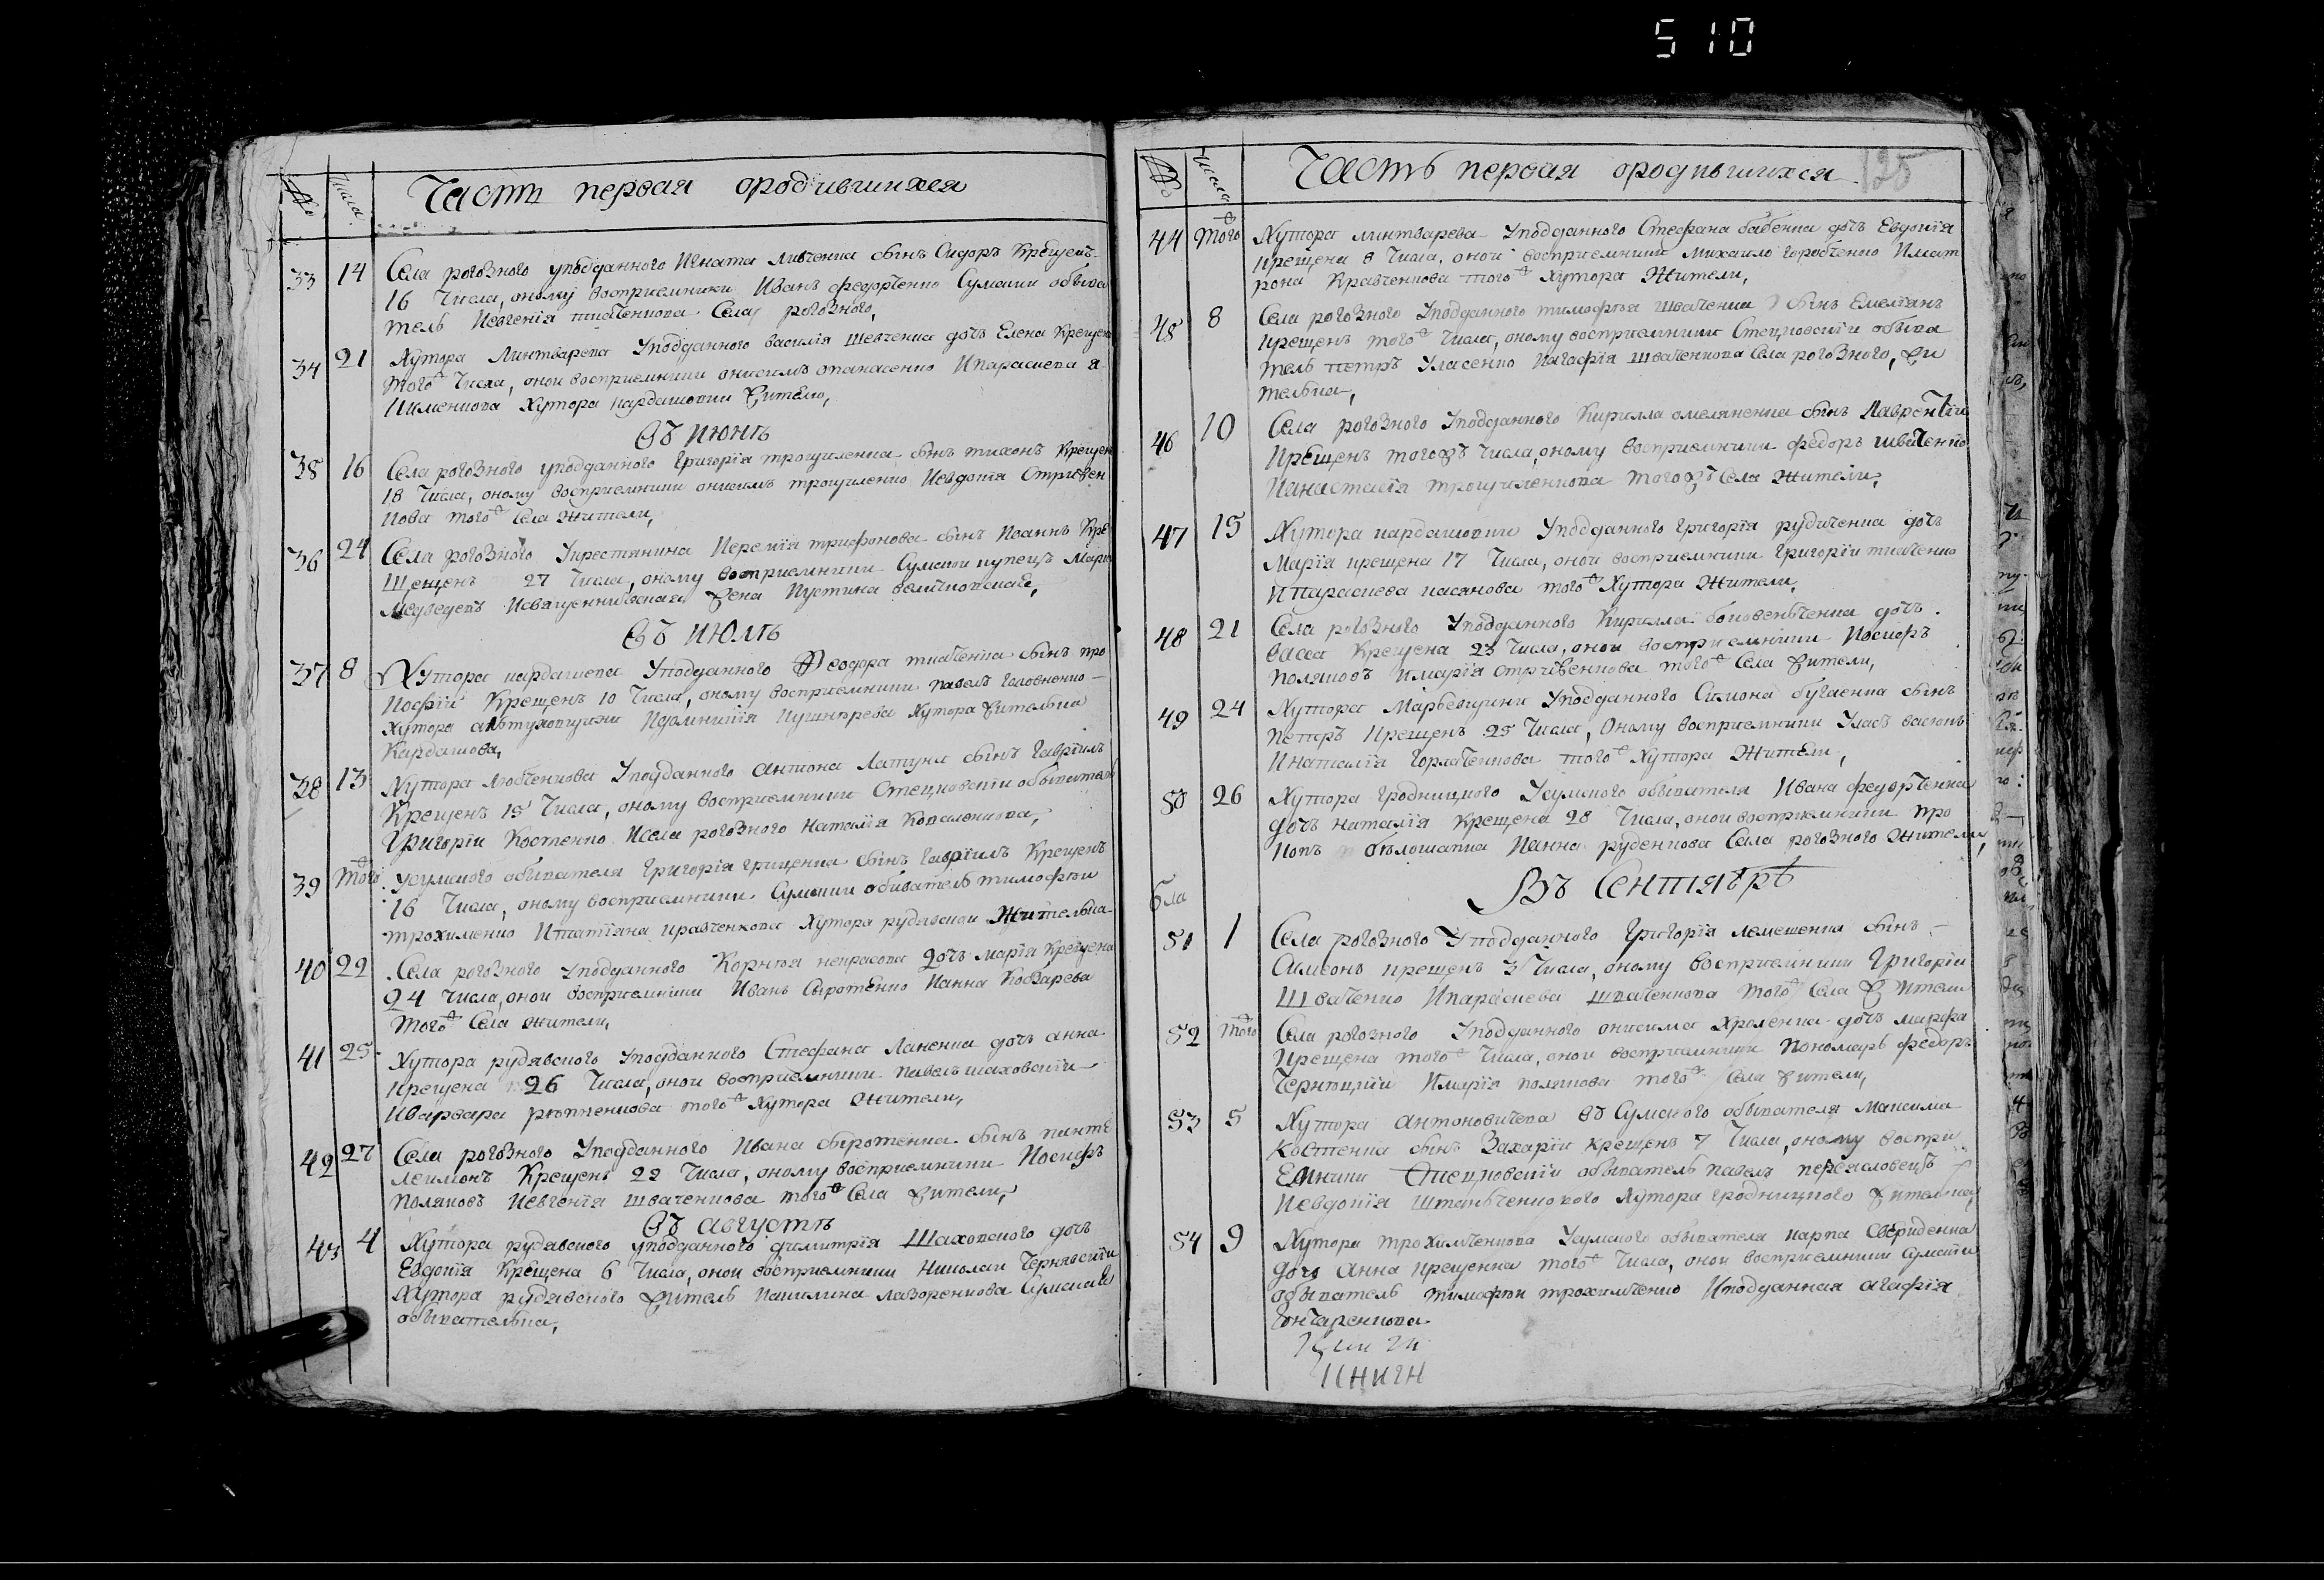 510
Часть первая ородившихся
№ Числа
33 14 Села рогозного уподданного Игната ливченка сынъ Сидоръ Крещенъ
16 Числа, оному восприемники Иванъ федорченко Сумскии обыва
тель Иевгения ткаченкова Села рогозного,
34 21 Хутора Линтварева Уподданного василія шевченка дочъ Елена Крещена
того Числа, онои восприемники онисимъ опанасенко Ипараскева я
кименкова Хутора кардашовки жители,
Въ июнѣ
35 16 Села рогозного уподданного григорія трощиленка сынъ тихонъ Крещен
18 Числа, оному восприемники онисимъ трощиленко Иевдокия Стригвен
кова того Села жители,
36 24 Села рогозного Укрестянина Иеремѣя трифонова сынъ Иоаннъ Кре
щенъ 27 Числа, оному восприемники Сумскии купецъ Марк
Медведевъ Исвященническая жена Иустина величковская,
Въ июлѣ
37 8 Хутора кардашева Уподданного Феодора ткаченка сынъ про
кофіи Крещенъ 10 Числа, оному восприемники павелъ головненко
Хутора алтуховщини Идомникия Кушнѣрева Хутора жителка
Кардашова,
38 13 Хутора любченкова Уподданного антона Латуна сынъ Гаврѣилъ
Крещенъ 15 Числа, оному восприемники Стецковскіи обыватель
Григоріи Костенко Исела рогозного Наталѣя Коваленкова,
39 Того Усумского обывателя Григорія грищенка сынъ Гаврѣилъ Крещенъ
16 Числа, оному восприемники Сумскии обыватель тимофѣи
трохименко Итатіяна кравченкова Хутора рудавскои жителка
40 22 Села рогозного Уподданного Корнѣя некрасова дочъ марія Крещена
24 Числа, онои восприемники Иванъ Сыротенко Ианна Козарева
того Села жители,
41 25 Хутора рудавского Уподданного Стефана Ланенка дочъ анна
крещена 26 Числа, онои восприемники павелъ шаховскіи
Иварвара рѣпченкова того Хутора жители,
42 27 Села рогозного Уподданного Ивана сыротенка сынъ панте
леимонъ Крещенъ 29 Числа, оному восприемники Иосифъ
Поляковъ Иевгенія шваченкова того Села жители,
Въ августѣ
43 4 Хутора рудавского уподданного димитрія Шаховского дочъ
Евдокія Крещена 6 Числа, онои восприемники Николаи Чернявскіи
Хутора рудавского житель Иакилина лазоренкова Сумская
обывателка,
Часть первая ородившихся 125
№ Числа
44 Того Хутора линтварева Уподданного Стефана бабенка дочъ Евдокія
крещена 8 Числа, онои восприемники михаило горобченко Имат
рона Кравченкова того Хутора Жители,
45 8 Села рогозного Уподданного тимофѣя шваченка сынъ Емелѣянъ
крещенъ того Числа, оному восприемники Стецковскіи обыва
тель петръ Уласенко Иагафія шваченкова Села рогозного, жи
телка,
46 10 Села рогозного Уподданного Кирилла омеляненка сынъ Лаврентіи
Крещенъ тогожъ Числа, оному восприемники федоръ шваченко
Ианастасія трощиленкова тогожъ Села Жители,
47 15 Хутора кардашовки Уподданного григорія рудиченка дочъ
Марія крещена 17 Числа, онои восприемники григоріи ткаченко
Ипараскева касянова того Хутора Жители,
48 21 Села рогозного Уподданного Кирилла боковенченка дочъ
васса Крещена 23 Числа, онои восприемники Иосифъ
поляковъ Имарія стригвенкова того Села жители,
49 24 Хутора Марѣевщини Уподданного Симона бугаенка сынъ
петръ Крещенъ 25 Числа, оному восприемники Уласъ васюнъ
Инаталія Горлаченкова того Хутора Жители,
50 26 Хутора Гродницкого Усумского обывателя Ивана федорченка
дочъ наталія Крещена 28 Числа, онои восприемники про
копъ бѣлошапка Ианна руденкова Села рогозного Жители,
Въ Сентябрѣ
51 1 Села рогозного Уподданного Григорія лемешенка сынъ
Симеонъ крещенъ 3 Числа, оному восприемники Григоріи
Шваченко Ипараскева шваченкова того Села жители
52 Того Села рогозного Уподданного онисима Хроленка дочъ марфа
Крещена того Числа, онои восприемники Пономарь федоръ
Чернецкіи Имарія полякова того Села жители,
53 5 Хутора антоновичева въ Сумского обывателя Максима
Костенка сынъ Захаріи Крещенъ 7 Числа, оному воспри
Емники Стецковскіи обыватель павелъ переясловецъ
Иевдокія Хутора Гродницкого жителка,
54 9 Хутора трохимченкова Усумского обывателя карпа Свириденка
дочь анна крещенна того Числа, онои восприемники Сумскіи
обыватель тимофѣи трохимченко Иподданная агафія
Гончаренкова.